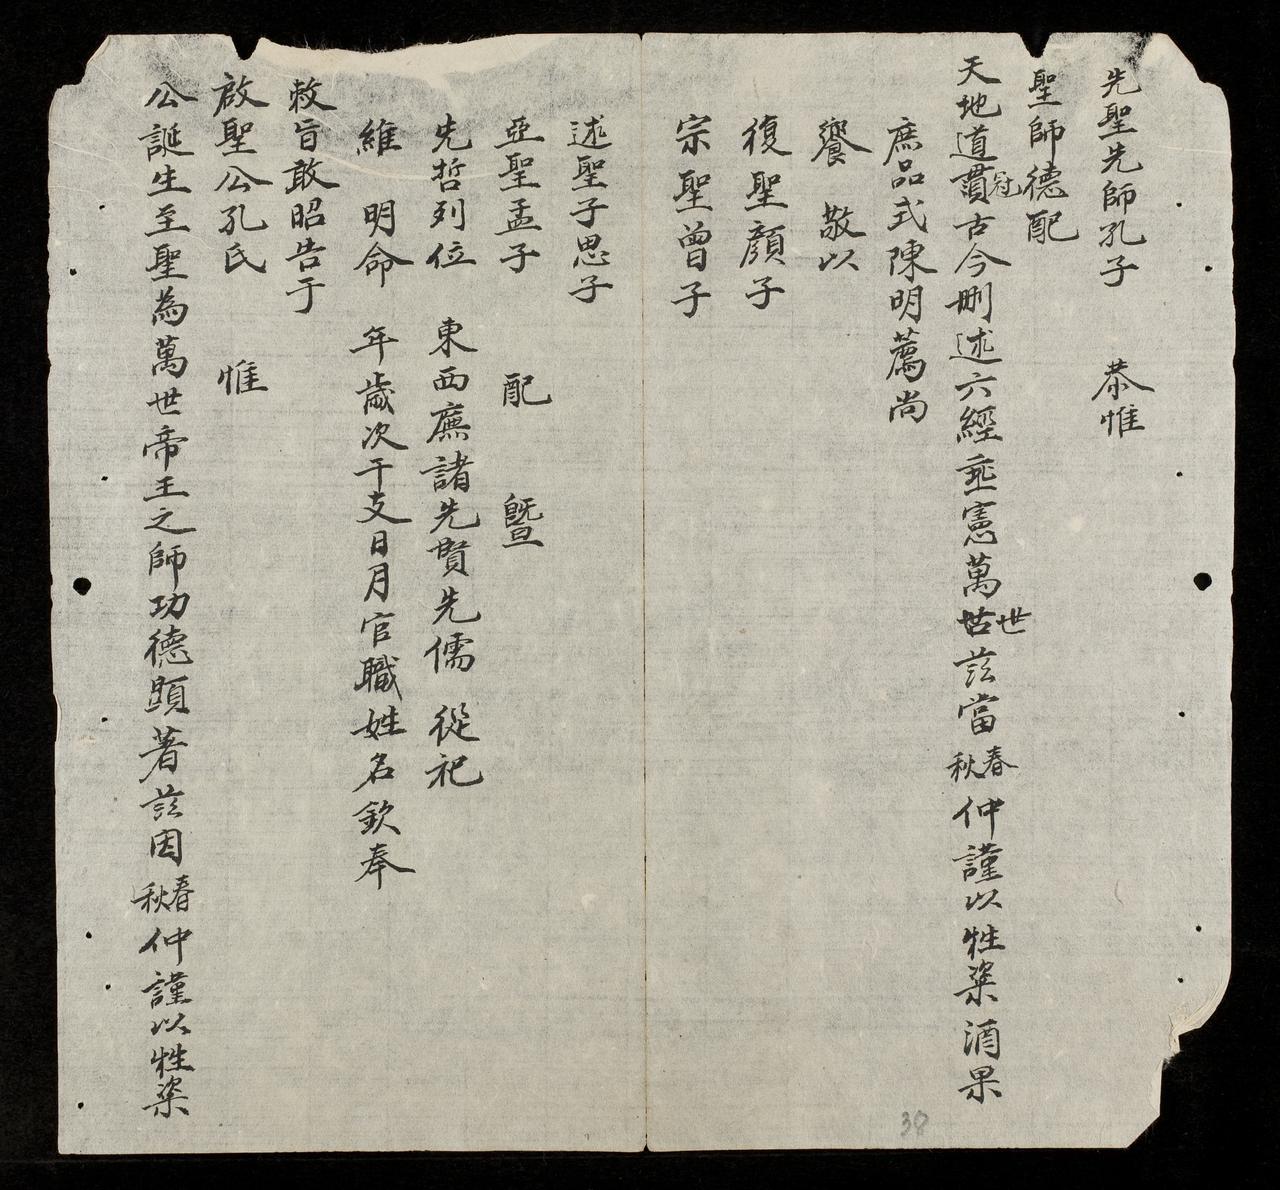 先聖先師孔子 恭惟
聖師德配
天地道冠貫古今刪述六經垂憲萬世世茲當春秋仲謹以牲粢酒果
庶品式陳明薦尚
饗 敬以
復聖顏子
宗聖曾子
述聖子思子
亞聖孟子 配 暨
先哲列位 東西廡諸先賢先儒 從祀
維 明命 年歲次干支日月官職姓名欽奉
敕旨敢昭告于
啟聖公孔氏 惟
公誕生至聖為萬世帝王之師功德顯著茲因春秋仲謹以牲粢
38